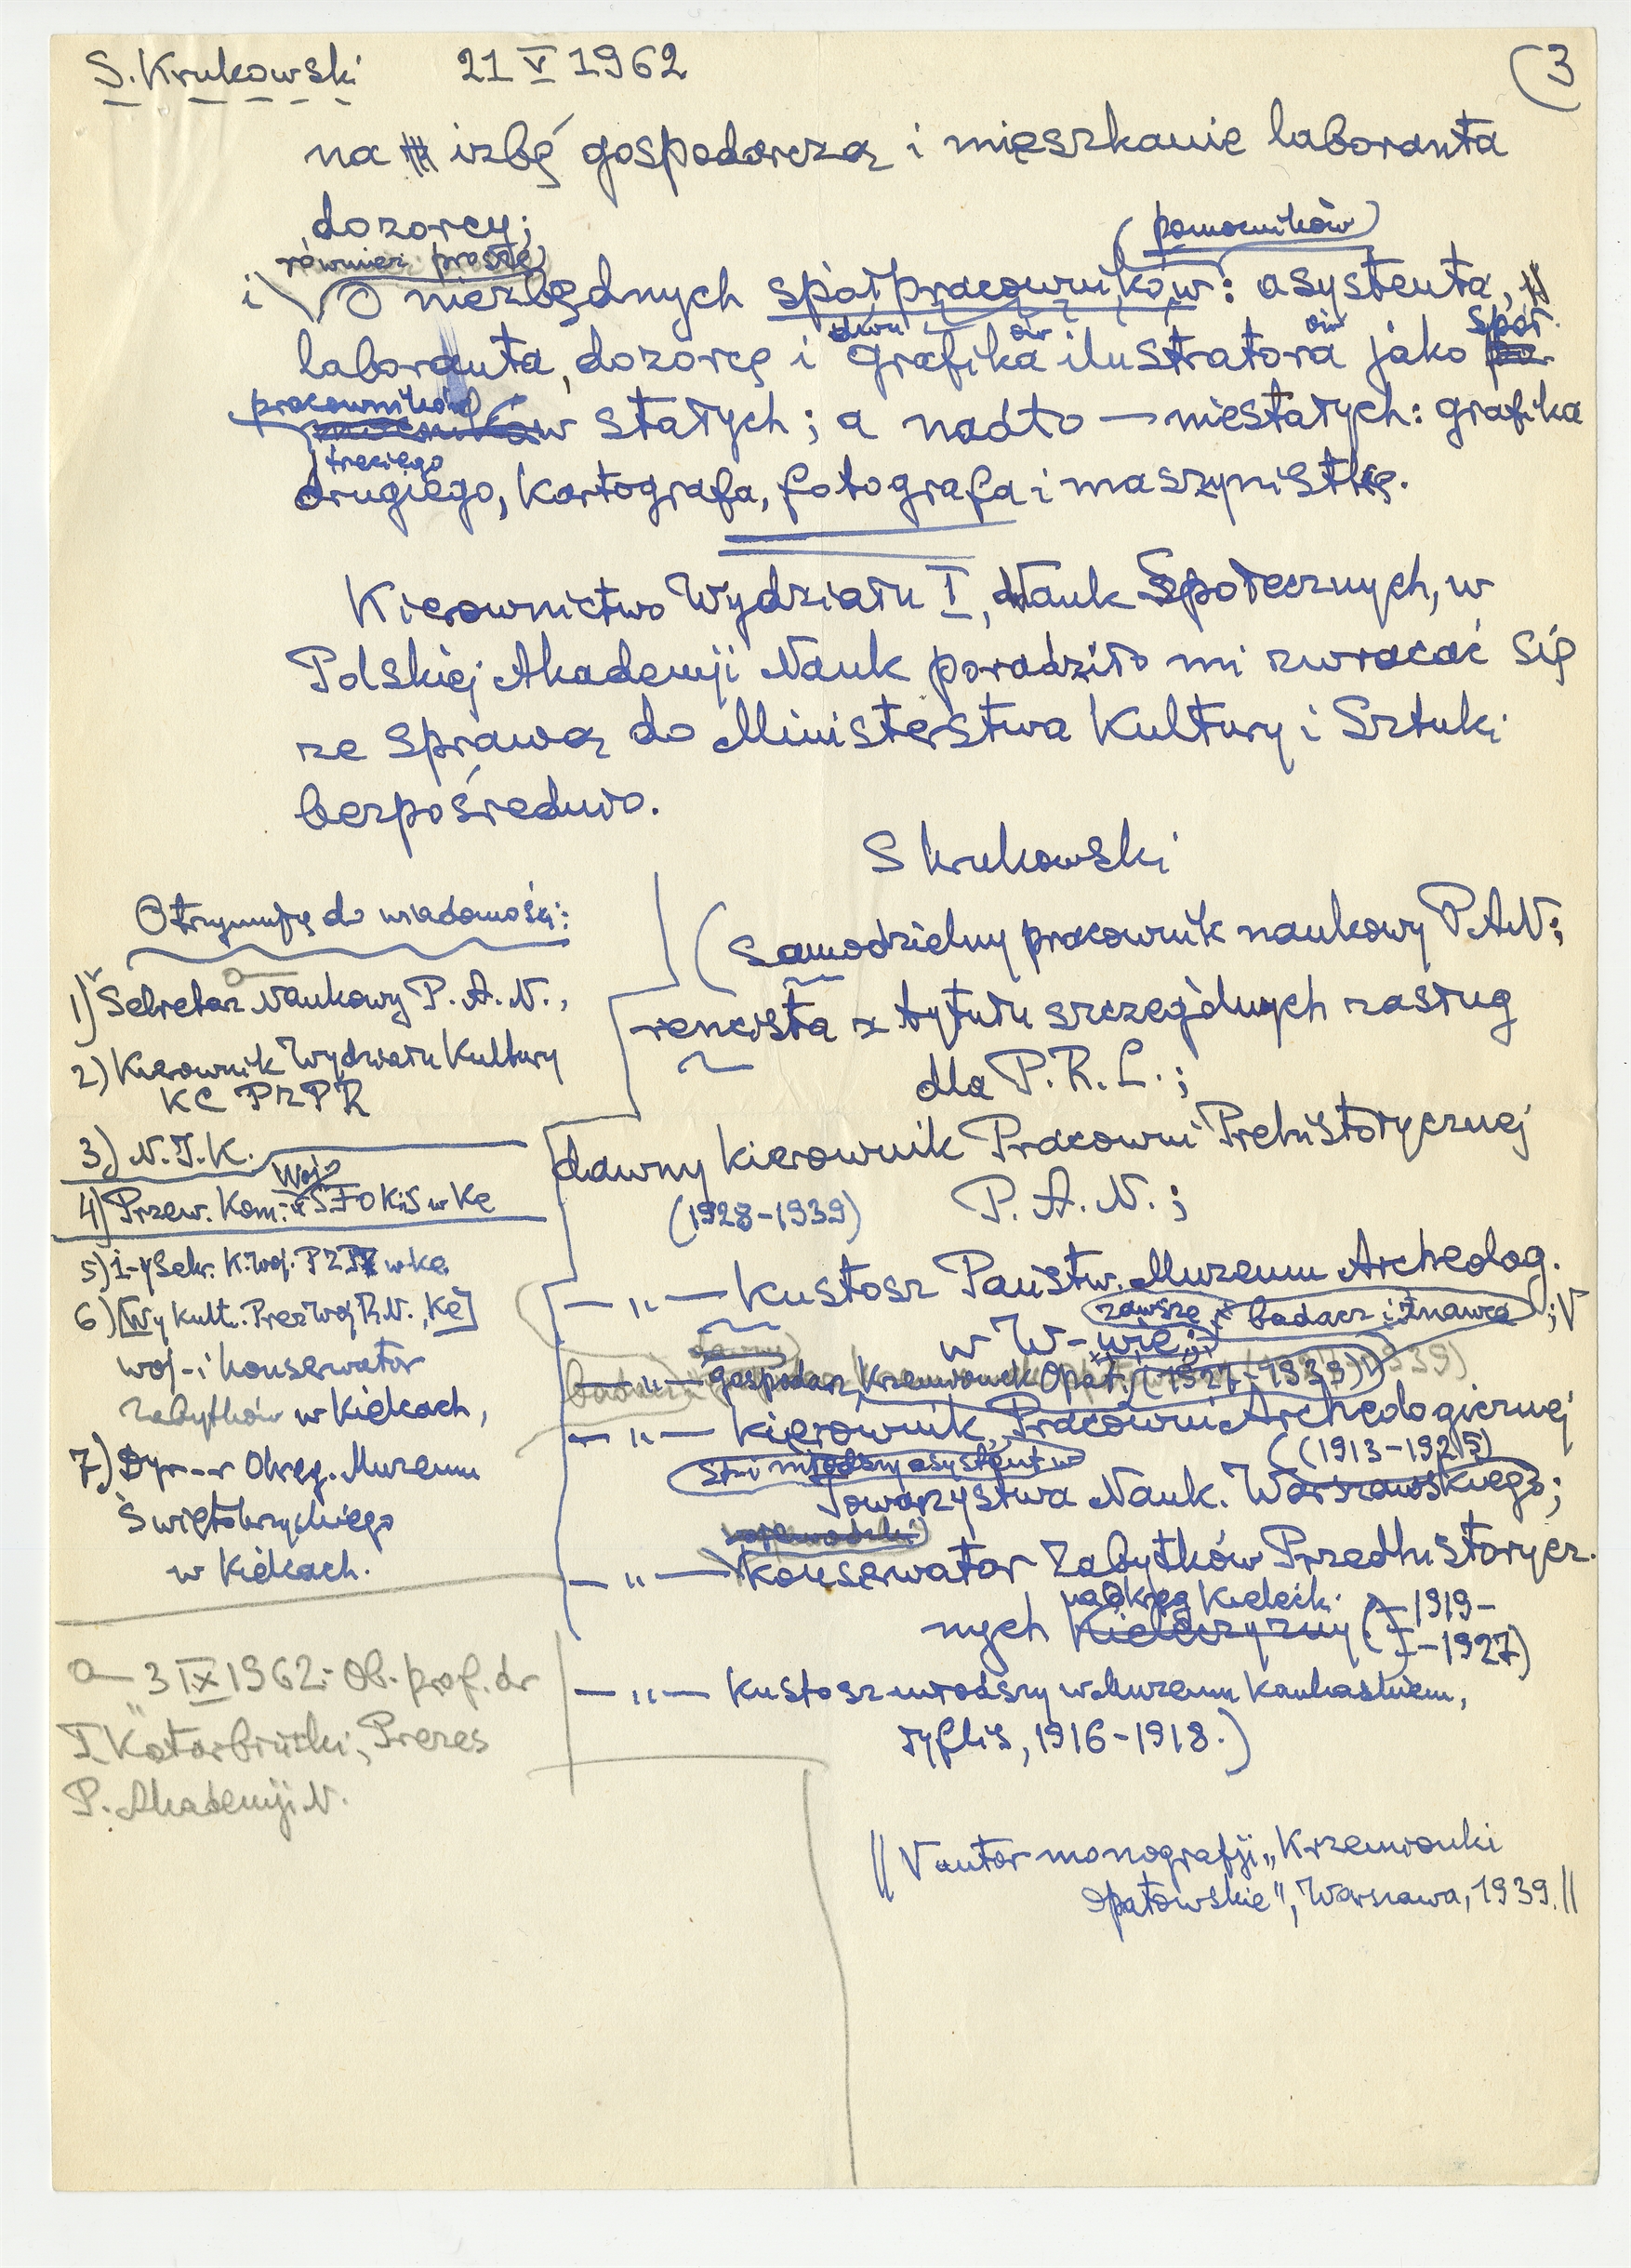 S. Krukowski 21 V 1962 (3
na izbę gospodarczą i mieszkanie laboranta
dozorcy;
(pomocników)
również proszę
i O niezbędnych spółpracowników: asystenta,
dwu ów ów spół-
laboranta, dozorcę i grafika ilustratora jako po-
pracowników
mocników stałych; a nadto — niestałych: grafika
trzeciego
drugiego, kartografa, fotografa i maszynistkę.
Kierownictwo Wydziału I, Nauk Społecznych, w
Polskiej Akademji Nauk poradziło mi zwracać się
ze sprawą do Ministerstwa Kultury i Sztuki
bezpośrednio.
S Krukowski
(Samodzielny pracownik naukowy P.A.N;
rencista z tytułu szczególnych zasług
dla P.R.L.;
dawny kierownik Pracowni Prehistorycznej
P.A.N.;
(1928-1939)
— " — kustosz Państw. Muzeum Archeolog.
zawsze badacz i znawca ;V
w W-wie;
— " — gospodarz Krzemionek Opat. (1927-1939)
— " — kierownik Pracowni Archeologicznej
((1913-1925)
st. i młodszy asystent w
Towarzystwa Nauk. Warszawskiego;
wojewódzki
— " — konserwator Zabytków Przedhistorycz-
na Okręg Kielecki
nych Kielczyzny (—1919-
—1927)
— " — kustosz młodszy w Muzeum Kaukaskiem,
Tyflis, 1916-1918.)
|| V autor monografji „Krzemionki
Opatowskie", Warszawa, 1939. ||
Otrzymują do wiadomości:
1) Sekretarz Naukowy P.A.N.,
2) Kierownik Wydziału Kultury
KC PZPR
3) N.I.K.
Woj
4) Przew. Kom. ŚFOKiS w Ke
5) 1-y Sekr. K. Woj. PZPR w Ke
6) [Wy Kult. Prez Woj R.N., Ke]
woj-i konserwator
Zabytków w Kielcach,
7) Dyr-r Okręg. Muzeum
Świętokrzyskiego
w Kielcach.
a — 3 IX 1962: Ob. prof. dr
T. Kotarbiński, Prezes
P. Akademji N.